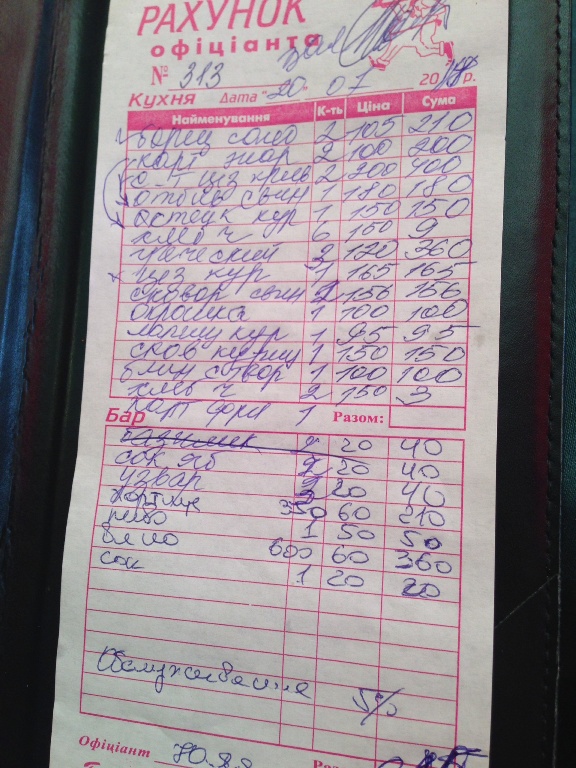 РАХУНОК
офіціанта
№ 313
Кухня Дата "20" 07 20 р.
Найменування К-ть Ціна Сума
борщ 2 105 210
карт жар 2 100 200
2 200 400
отбив свин 1 180 180
кур 1 150 150
хлеб ч 6 150 9
греческий 3 120 360
цез кур 1 165 165
сковор свин 156 156
окрошка 1 100 100
лапш кур 1 95 95
сков куриц 1 150 150
блин с твор 1 100 100
хлеб ч 2 150 3
карт фри 1
Бар Разом:
2 20 40
сок яб 2 20 40
узвар 20 40
350 60 210
пиво 1 50 50
вино 600 60 360
сок 1 20 20
Обслуживание 5%
Офіціант